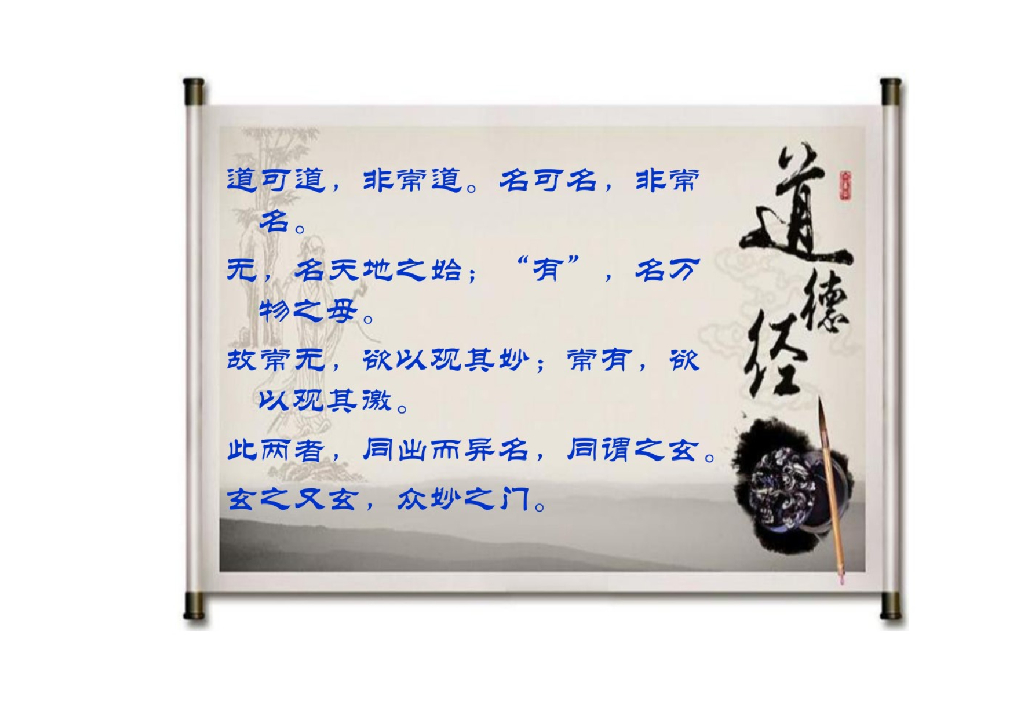 道可道，非常道。名可名，非常
名。
无，名天地之始；“有”，名万
物之母。
故常无，欲以观其妙；常有，欲
以观其徼。
此两者，同出而异名，同谓之玄。
玄之又玄，众妙之门。
道德经